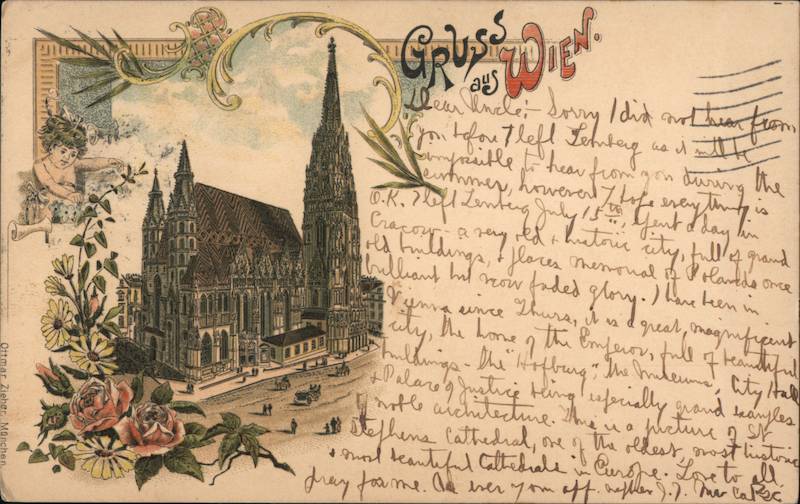 GRUSS aus WIEN.
Dear Uncle:- Sorry I did not hear from
you before I left Lemberg as it will be
impossible to hear from you during the
summer, however I hope everything is
O.K. I left Lemberg July 15th, spent a day in
Cracow - a very old & historic city, full of grand
old buildings, & places memorial of Polands once
brilliant but now faded glory. I have been in
Vienna since Thurs, it is a great, magnificent
city, the home of the Emperor, full of beautiful
buildings - the "Hofburg", the Museums, City Hall
& Palace of Justice being especially grand examples
of noble architecture. This is a picture of St
Stephens Cathedral, one of the oldest, most historic
& most beautiful Cathedrals in Europe. Love to all
pray for me. As ever your aff. nephew
Ottmar Zieher, München